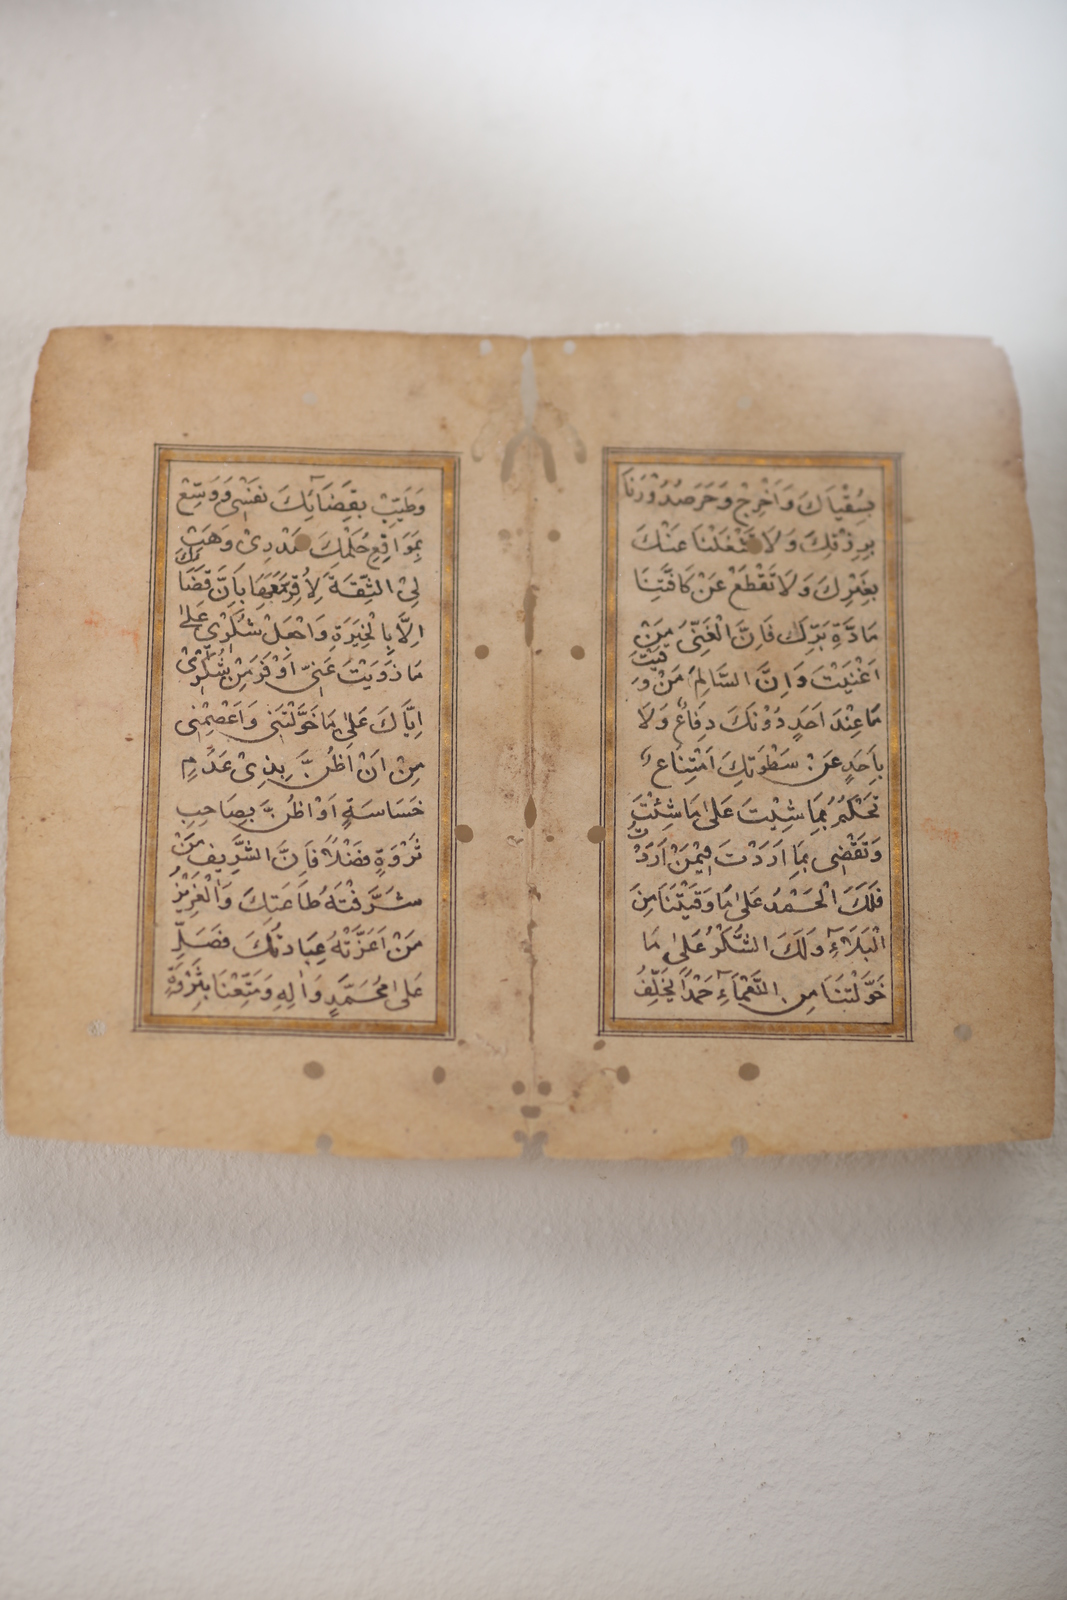 بِسُقْيَاكَ وَاَخْرِجْ وَحَرَ صُدُوْرِنَا
بِرِزْقِكَ وَلَا تَشْغَلْنَا عَنْكَ
بِغَيْرِكَ وَلَا تَقْطَعْ عَنْ كَافَّتِنَا
مَادَّةَ بَرِّكَ فَاِنَّ الْغَنِيَّ مَنْ
اَغْنَيْتَ وَاِنَّ السَّالِمَ مَنْ وَقَيْتَ
مَا عِنْدَ اَحَدٍ دُوْنَكَ دِفَاعٌ وَلَا
بِاَحَدٍ عَنْ سَطْوَتِكَ اَمْتِنَاعٌ
تَحْكُمُ بِمَا شِئْتَ عَلٰى مَا شِئْتَ
وَتَقْضِى بِمَا اَرَدْتَ فِيْمَنْ اَرَدْتَ
فَلَكَ الْحَمْدُ عَلٰى مَا وَقَيْتَنَا مِنَ
الْبَلَآءِ وَلَكَ الشُّكْرُ عَلٰى مَا
خَوَّلْتَنَا مِنَ النَّعْمَآءِ حَمْدًا يُخَلِّفُ
وَطَيِّبْ بِقَضَآئِكَ نَفْسِى وَوَسِّعْ
بِمَوَاقِعِ حُكْمِكَ صَدْرِىْ وَهَبْ
لِىْ الثِّقَةَ لِاُقِرَّ مَعَهَا بِاَنَّ قَضَاءَكَ
اِلَّا بِالْخِيَرَةِ وَاجْعَلْ شُكْرِىْ عَلٰى
مَا زَوَيْتَ عَنِّى اَوْفَرَ مِنْ شُكْرِىْ
اِيَّاكَ عَلٰى مَا خَوَّلْتَنِى وَاعْصِمْنِى
مِنْ اَنْ اَظُنَّ بِذِىْ عَدَمٍ
خَسَاسَةٍ اَوْ اَظُنَّ بِصَاحِبِ
ثَرْوَةٍ فَضْلًا فَاِنَّ الشَّرِيفَ مَنْ
شَرَّفَتْهُ طَاعَتِكَ وَالْعَزِيْزُ
مَنْ اَعَزَّتْهُ عِبَادَتُكَ فَصَلِّ
عَلٰى مُحَمَّدٍ وَاٰلِهِ وَمَتِّعْنَا بِثَرْوَةٍ